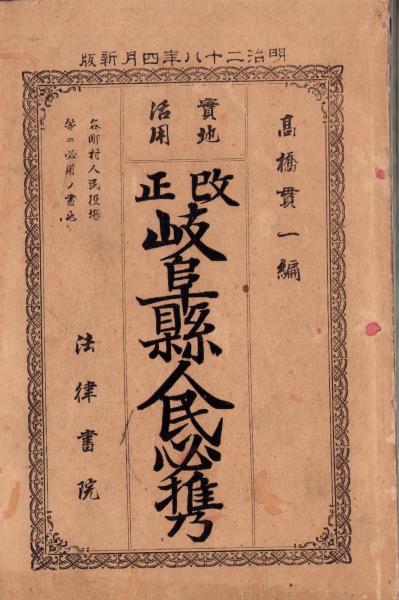 明治二十八年四月新版
高橋貫一編
實地
活用
改正
岐阜縣人民必携
各町村人民役場
等ニ必用ノ書也
法律書院